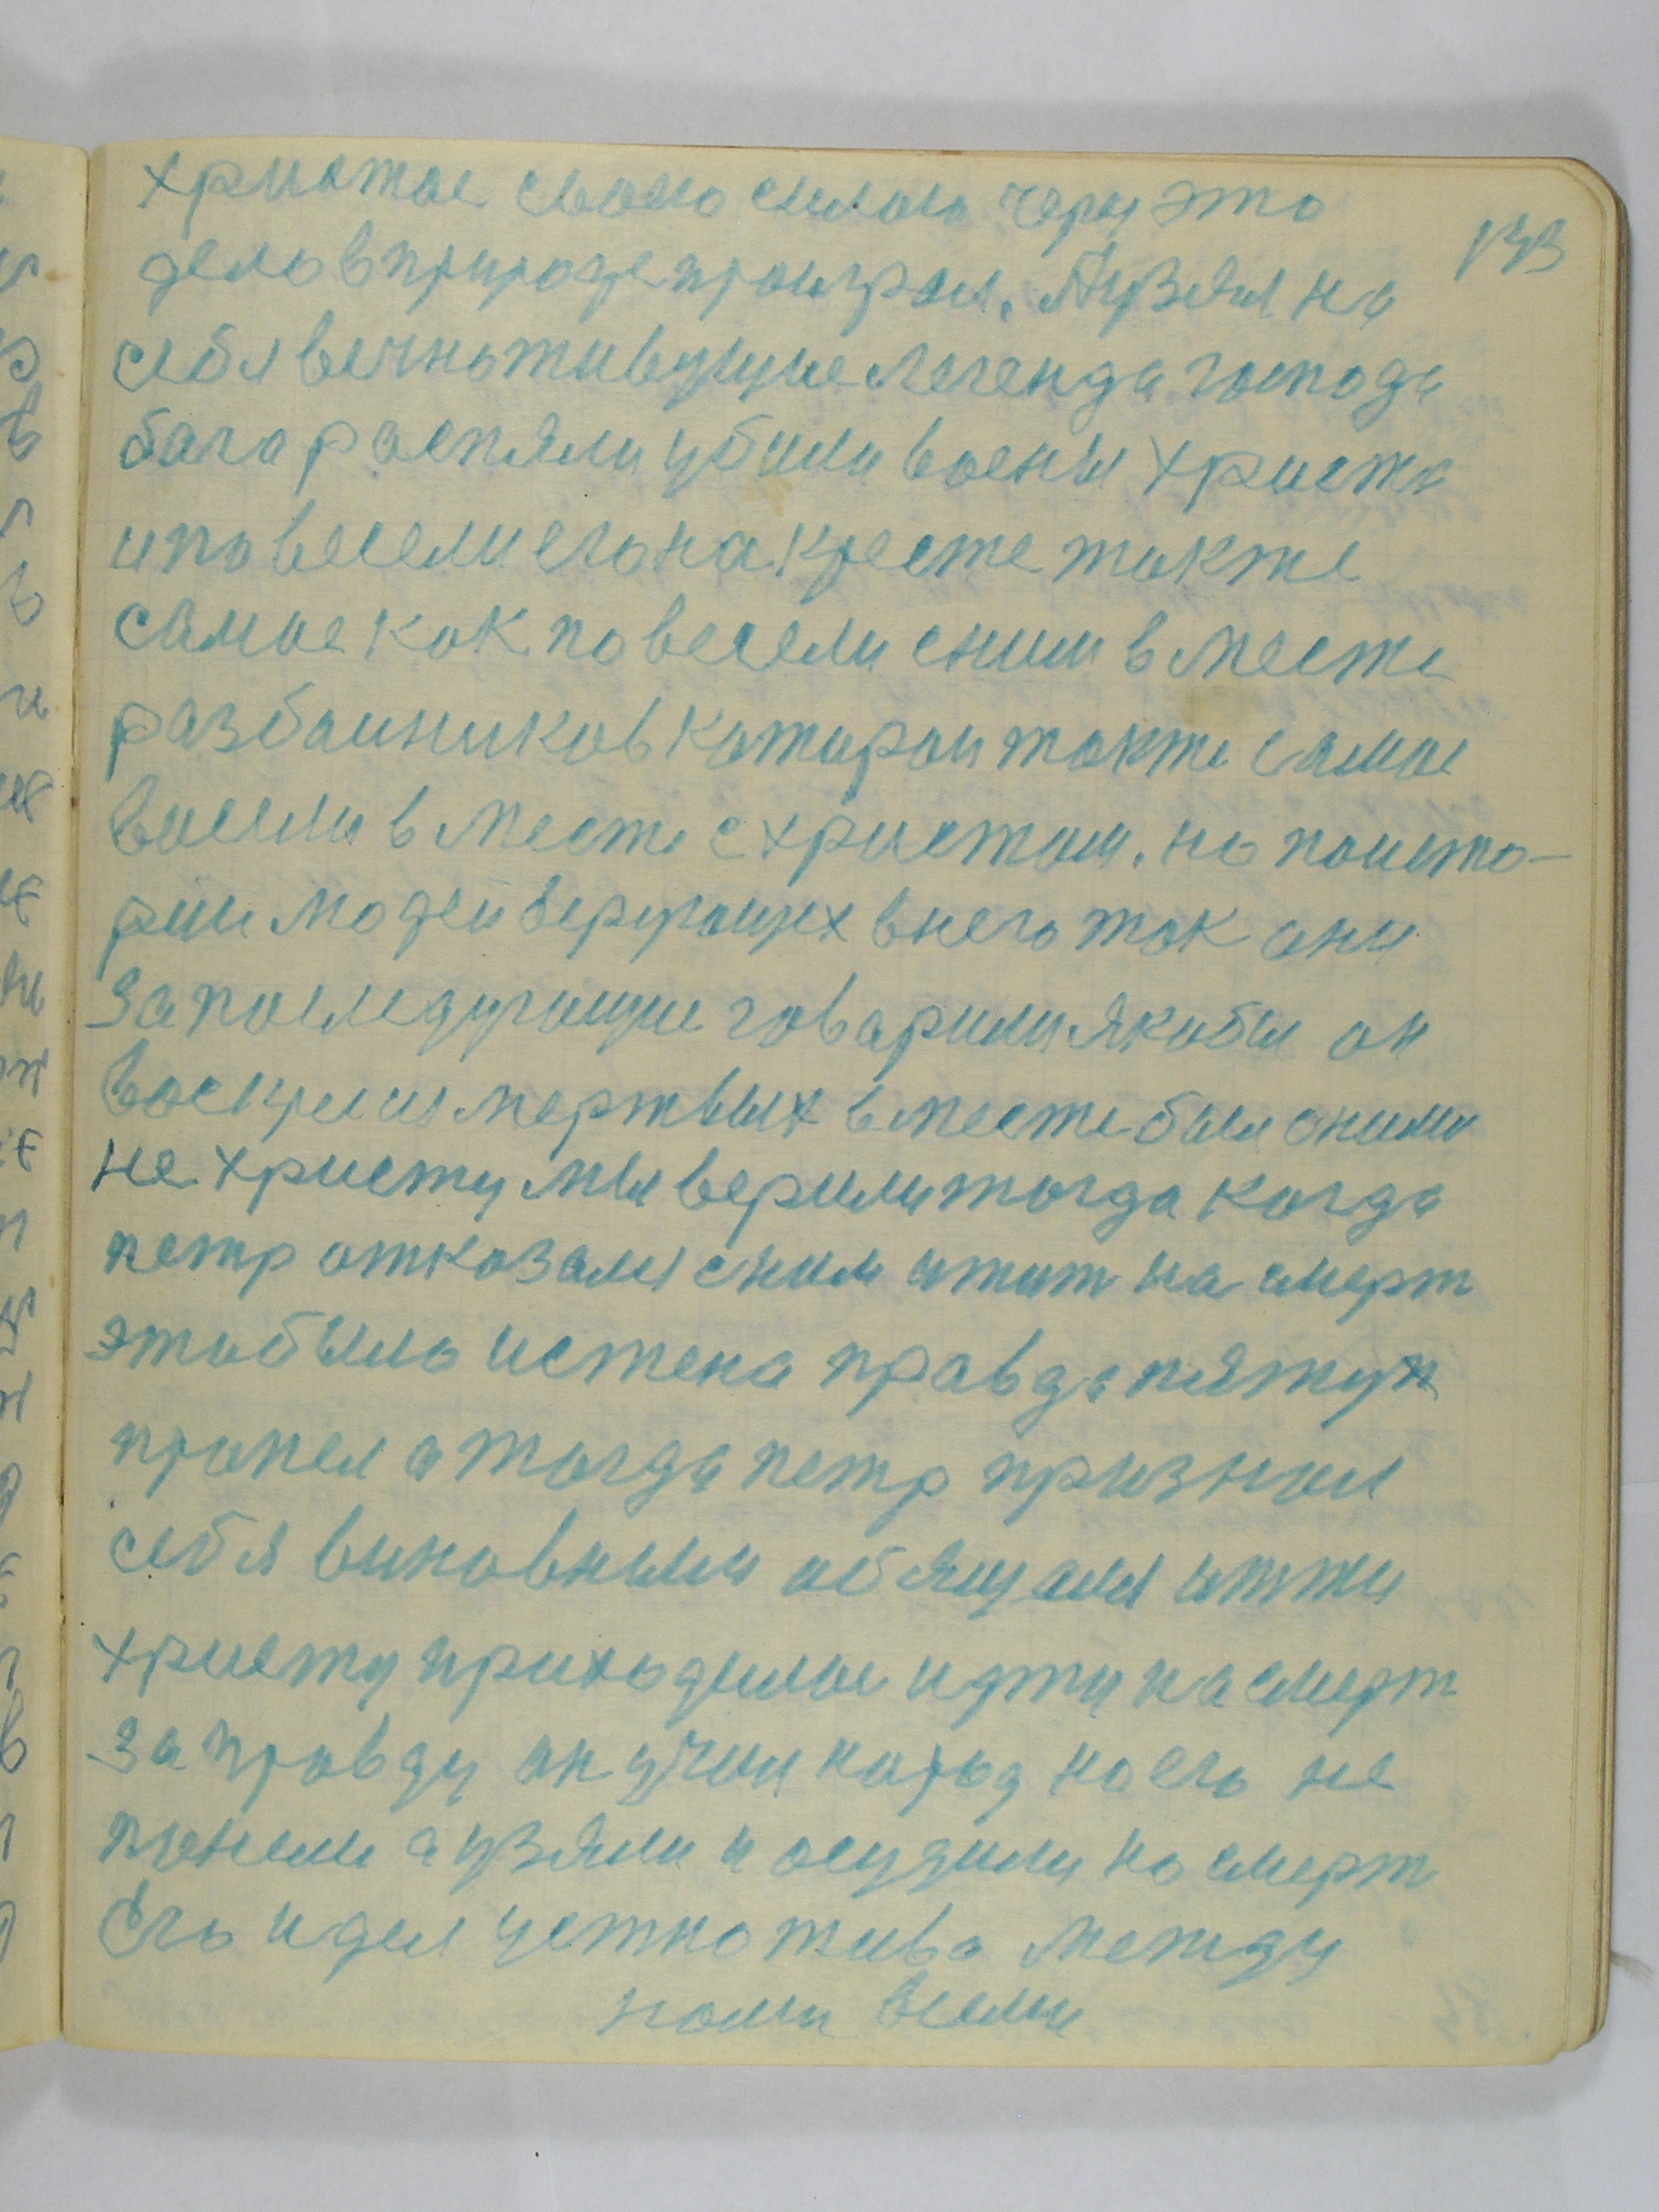 христос своею силою через это
133
дело в природе проиграл. А узял на
себя вечноживущие легенда господа
бога роспяли убили воены христа
и повесели его на кресте так же
самое как повесели сним вместе
разбоиников каторои так же самое
восели вместе с христом. но поисто-
рии людей верующих внего так они
запоследующие говорили якобы он
воскрес из мертвых вместе был сними
не христу мы верили тогда когда
петр отказался сним итит на смерт
этобыло истена правда пятух
пропел а тогда петр признал
себя виновным обящался итти
христу приходилос идти на смерт
за правду он учил народ но его не
поняли а узяли и осудили на смерт
Его идея устно жива между
нами всеми